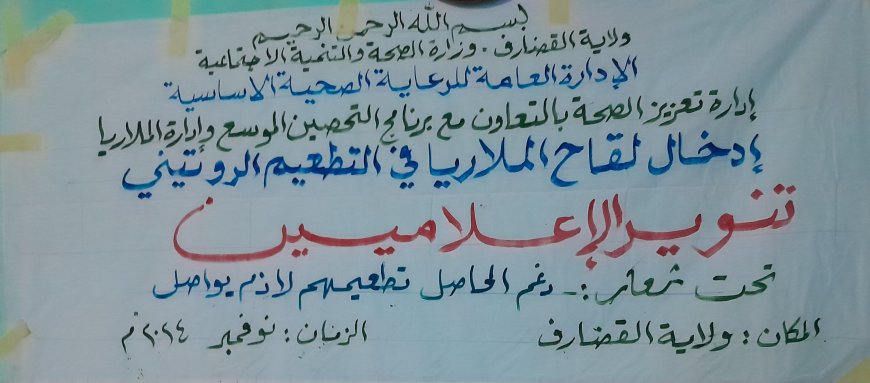 بسم الله الرحمن الرحيم
ولاية القضارف. وزارة الصحة والتنمية الاجتماعية
الإدارة العامة للرعاية الصحية الاساسية
إدارة تعزيز الصحة بالتعاون مع برنامج التحصين الموسع وإدارة الملاريا
إدخال لقاح الملاريا في التطعيم الروتيني
تنوير الإعلاميين
تحت شعار :- رغم الحاصل تطعيمهم لازم يواصل
المكان : ولاية القضارف الزمان : نوفمبر ٢٠٢٤م